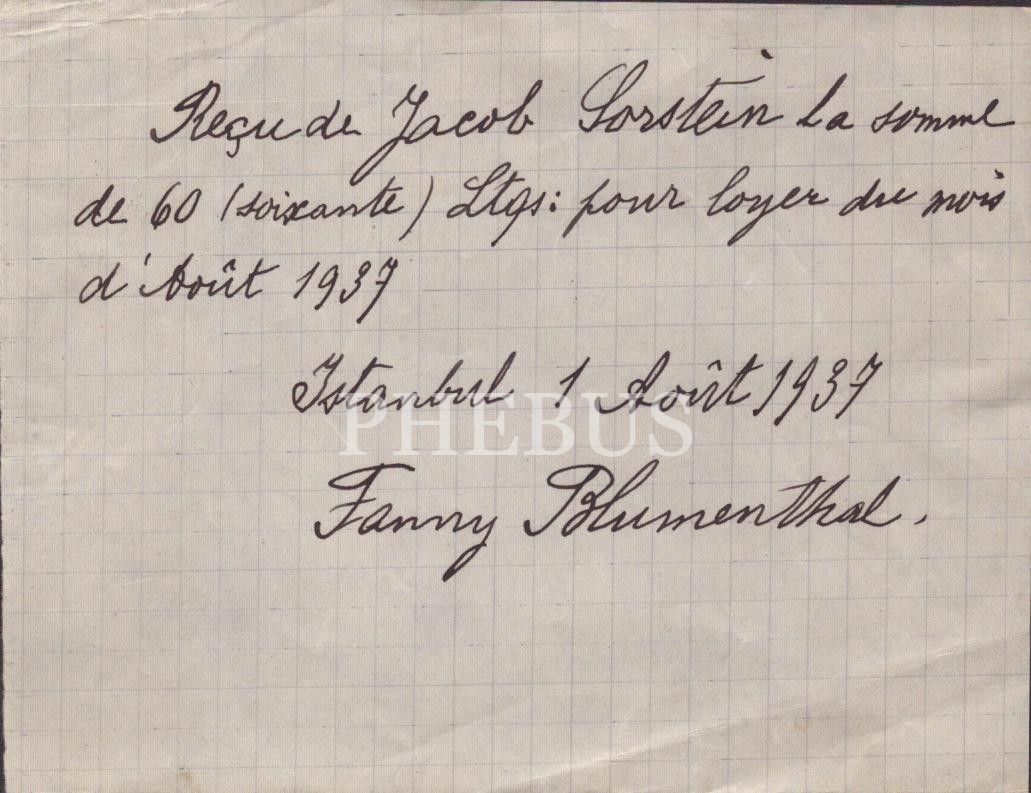 Reçu de Jacob Sorstein la somme
de 60 (soixante) Ltqs: pour loyer du mois
d'Août 1937
Istanbul 1 Août 1937
PHEBUS
Fanny Blumenthal.